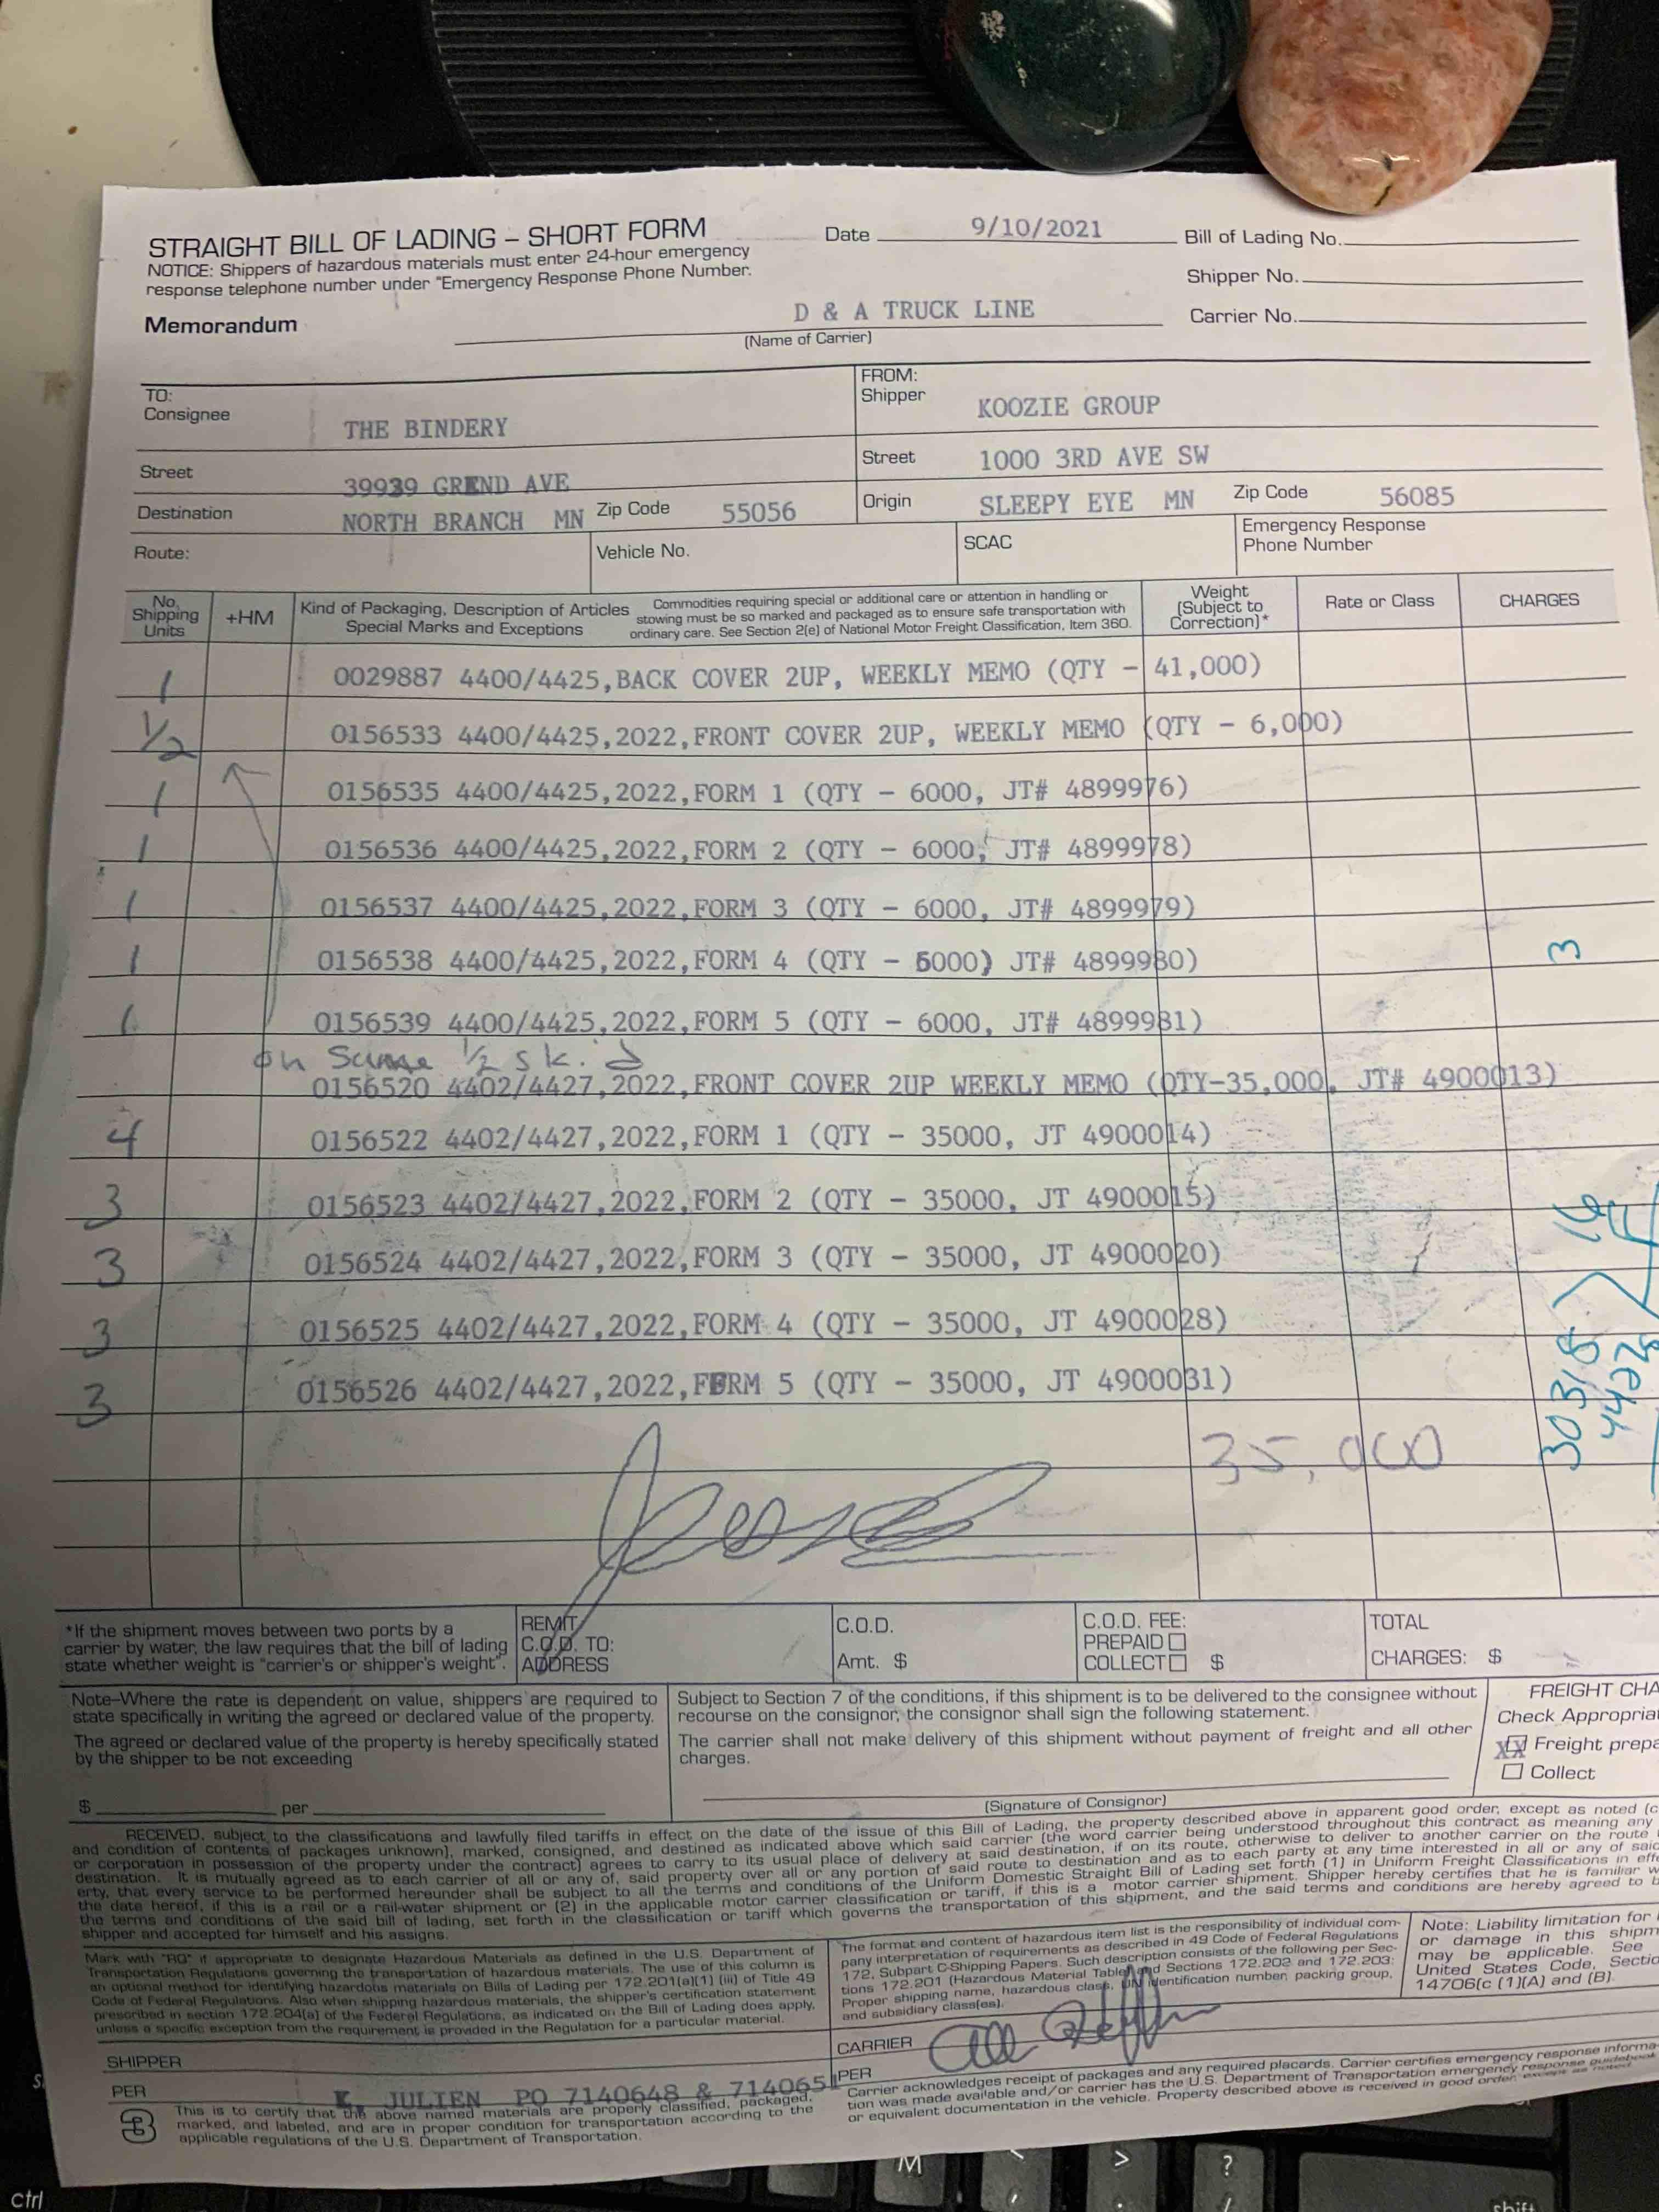 STRAIGHT BILL OF LADING – SHORT FORM
NOTICE: Shippers of hazardous materials must enter 24-hour emergency
response telephone number under "Emergency Response Phone Number.
Memorandum
Date 9/10/2021
Bill of Lading No.
Shipper No.
Carrier No.
D & A TRUCK LINE
(Name of Carrier)
TO:
Consignee THE BINDERY
Street 39939 GREND AVE
Destination NORTH BRANCH MN Zip Code 55056
FROM:
Shipper KOOZIE GROUP
Street 1000 3RD AVE SW
Origin SLEEPY EYE MN Zip Code 56085
Route: Vehicle No. SCAC Emergency Response
Phone Number
No. Shipping Units
+HM
Kind of Packaging, Description of Articles
Special Marks and Exceptions
Commodities requiring special or additional care or attention in handling or
stowing must be so marked and packaged as to ensure safe transportation with
ordinary care. See Section 2(e) of National Motor Freight Classification, Item 360.
Weight
(Subject to
Correction)*
Rate or Class
CHARGES
1 0029887 4400/4425,BACK COVER 2UP, WEEKLY MEMO (QTY – 41,000)
1/2 0156533 4400/4425,2022,FRONT COVER 2UP, WEEKLY MEMO (QTY – 6,000)
1 0156535 4400/4425,2022,FORM 1 (QTY – 6000, JT# 4899976)
1 0156536 4400/4425,2022,FORM 2 (QTY – 6000, JT# 4899978)
1 0156537 4400/4425,2022,FORM 3 (QTY – 6000, JT# 4899979)
1 0156538 4400/4425,2022,FORM 4 (QTY – 6000) JT# 4899980)
1 0156539 4400/4425,2022,FORM 5 (QTY – 6000, JT# 4899981)
on Same 1/2 skid
0156520 4402/4427,2022,FRONT COVER 2UP WEEKLY MEMO (QTY-35,000, JT# 4900013)
4 0156522 4402/4427,2022,FORM 1 (QTY – 35000, JT 4900014)
3 0156523 4402/4427,2022,FORM 2 (QTY – 35000, JT 4900015)
3 0156524 4402/4427,2022,FORM 3 (QTY – 35000, JT 4900020)
3 0156525 4402/4427,2022,FORM 4 (QTY – 35000, JT 4900028)
3 0156526 4402/4427,2022,FORM 5 (QTY – 35000, JT 4900031)
3
16
30318
35,000
*If the shipment moves between two ports by a
carrier by water, the law requires that the bill of lading
state whether weight is "carrier's or shipper's weight".
REMIT
C.O.D. TO:
ADDRESS
C.O.D.
Amt. $
C.O.D. FEE:
PREPAID
COLLECT $
TOTAL
CHARGES: $
Note–Where the rate is dependent on value, shippers are required to
state specifically in writing the agreed or declared value of the property.
The agreed or declared value of the property is hereby specifically stated
by the shipper to be not exceeding
$ per
Subject to Section 7 of the conditions, if this shipment is to be delivered to the consignee without
recourse on the consignor, the consignor shall sign the following statement.
The carrier shall not make delivery of this shipment without payment of freight and all other
charges.
(Signature of Consignor)
FREIGHT CHA
Check Appropria
XX Freight prepa
Collect
RECEIVED, subject to the classifications and lawfully filed tariffs in effect on the date of the issue of this Bill of Lading, the property described above in apparent good order, except as noted (c
and condition of contents of packages unknown), marked, consigned, and destined as indicated above which said carrier (the word carrier being understood throughout this contract as meaning any
or corporation in possession of the property under the contract) agrees to carry to its usual place of delivery at said destination, if on its route, otherwise to deliver to another carrier on the route
destination. It is mutually agreed as to each carrier of all or any of, said property over all or any portion of said route to destination and as to each party at any time interested in all or any of said
erty, that every service to be performed hereunder shall be subject to all the terms and conditions of the Uniform Domestic Straight Bill of Lading set forth (1) in Uniform Freight Classifications in effe
the date hereof, if this is a rail or a rail-water shipment or (2) in the applicable motor carrier classification or tariff, if this is a motor carrier shipment. Shipper hereby certifies that he is familiar w
the terms and conditions of the said bill of lading, set forth in the classification or tariff which governs the transportation of this shipment, and the said terms and conditions are hereby agreed to b
shipper and accepted for himself and his assigns.
Mark with "RQ" if appropriate to designate Hazardous Materials as defined in the U.S. Department of
Transportation Regulations governing the transportation of hazardous materials. The use of this column is
an optional method for identifying hazardous materials on Bills of Lading per 172.201(a)(1) (iii) of Title 49
Code of Federal Regulations. Also when shipping hazardous materials, the shipper's certification statement
prescribed in section 172.204(a) of the Federal Regulations, as indicated on the Bill of Lading does apply,
unless a specific exception from the requirement is provided in the Regulation for a particular material.
The format and content of hazardous item list is the responsibility of individual com-
pany interpretation of requirements as described in 49 Code of Federal Regulations
172, Subpart C-Shipping Papers. Such description consists of the following per Sec-
tions 172.201 (Hazardous Material Table) and Sections 172.202 and 172.203:
Proper shipping name, hazardous class, UN identification number, packing group,
and subsidiary class(es).
Note: Liability limitation for
or damage in this shipm
may be applicable. See
United States Code, Sectio
14706(c (1)(A) and (B).
SHIPPER
PER K. JULIEN PO 7140648 & 714065
CARRIER
PER
This is to certify that the above named materials are properly classified, packaged,
marked, and labeled, and are in proper condition for transportation according to the
applicable regulations of the U.S. Department of Transportation.
Carrier acknowledges receipt of packages and any required placards. Carrier certifies emergency response informa-
tion was made available and/or carrier has the U.S. Department of Transportation emergency response guidebook
or equivalent documentation in the vehicle. Property described above is received in good order, except as noted.
ctrl
M
<
,
>
.
?
/
shift